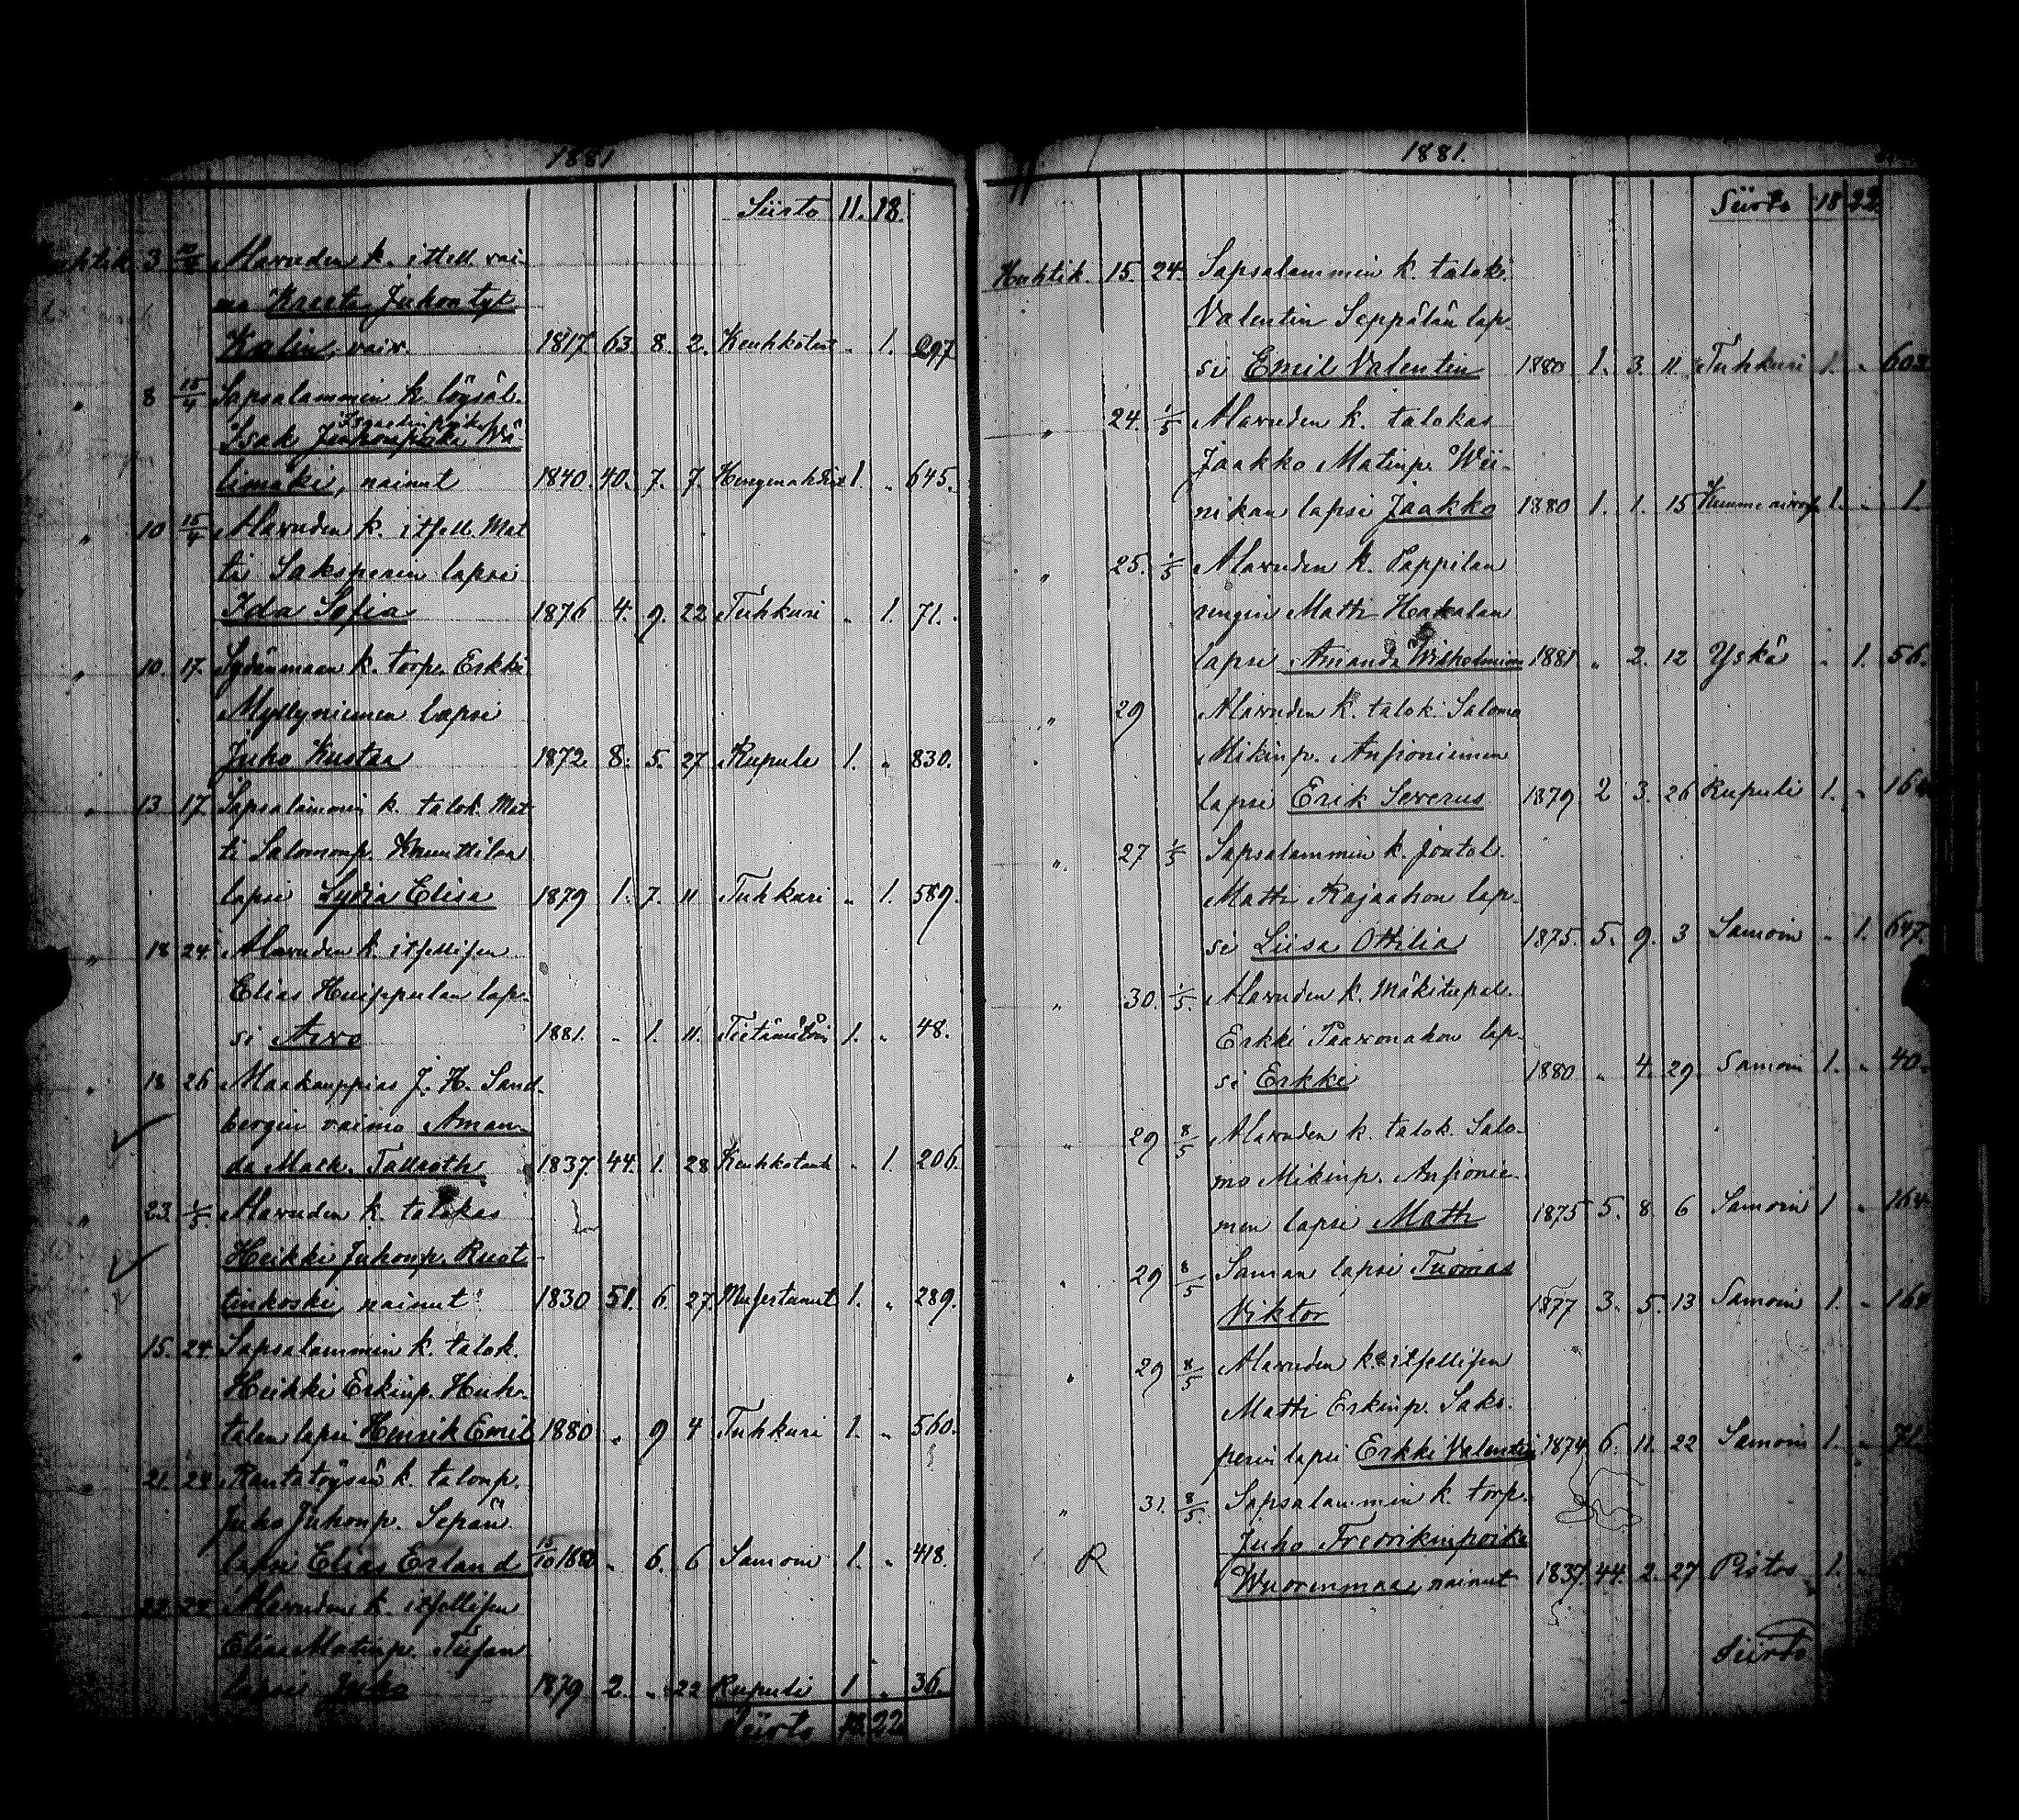 1881
Siirto 11. 18.
3 Alavuden k. itsell. vai-
mo Kreeta Juhontyt.
Kalin, vaiv. 1817 63. 8. 2. Keuhkotau " 1. 297
" 8 15/4 Sapsalammin k. löysäl.
Isak Juhonpoika Wä-
limäki, nainut 1840. 40. 7. 7. 1. " 645.
" 10 15/4 Alavuden k. itsell. Mat
ti Saksperin lapsi
Ida Sofia 1876 4. 9. 22 Tuhkuri " 1. 71.
" 10. 17. Sydänmaan k. torp. Erkki
Myllyniemen lapsi
Juho Kustaa 1872. 8. 5. 27 Rupuli 1. " 830.
" 13 17. Sapsalammin k. talok. Mat
ti Salomonp. Knuuttilan
lapsi Lydia Elisa 1879 1. 7. 11 Tuhkuri " 1. 589.
" 18 24. Alavuden k. itsellisen
Elias Huippulan lap-
si Arvo 1881. " 1. 11. Tietämätöin 1. " 48.
" 18 26 Maakauppias J. H. Sand-
bergin vaimo Aman-
da Math. Tallroth 1837. 44. 1. 28 Keuhkotaut " 1. 206.
" 23. 1/5. Alavuden k. talokas
Heikki Juhonp. Ruot-
sinkoski, nainut 1830 51. 6. 27. 1. " 289.
" 15. 24. Sapsalammin k. talok.
Heikki Erkinp. Huh-
talan lapsi Henrik Emil 1880 " 9 4 Tuhkuri 1. " 560.
" 21. 24 Rantatöysän k. talonp.
Juho Juhonp. Sepän
lapsi Elias Erland 15/10 1880 " 6. 6 Samoin 1. " 418.
" 22. 24. Alavuden k. itsellisen
Elias Matinp.
lapsi Juho 1879 2. " 22 Rupuli 1 " 36.
Siirto 18. 22
1881.
Siirto 18 22.
Huhtik. 15. 24. Sapsalammin k. talok.
Valentin Seppälän lap-
si Emil Valentin 1880 1. 3. 11 Tuhkuri 1. " 603
" 24. 1/5 Alavuden k. talokas
Jaakko Matinp. Wii-
nikan lapsi Jaakko 1880 1. 1. 15 1. " 1.
" 25. 1/5 Alavuden k. Pappilan
rengin Matti Hakalan
lapsi Amanda Wilhelmiina 1881 " 2. 12 Yskä " 1. 56.
" 29 Alavuden k. talok. Salomo
Mikinp. Ansioniemen
lapsi Erik Severus 1879 2 3. 26 Rupuli 1. " 164
" 27 1/5 Sapsalammin k. joutol.
Matti Rajaahon lap-
si Liisa Ottilia 1875. 5. 9. 3 Samoin " 1. 647.
" 30. 1/5. Alavuden k. Mäkitupal.
Erkki Paavonahon lap-
si Erkki 1880 " 4. 29 Samoin 1. " 40.
" 29 8/5 Alavuden k. talok. Salo-
mo Mikinp. Ansionie-
men lapsi Matti 1875 5. 8. 6 Samoin 1 " 164
" 29 8/5 Saman lapsi Tuomas
Viktor 1877 3. 5. 13 Samoin 1. " 164
" 29 8/5 Alavuden k. itsellisen
Matti Erkinp. Saks-
perin lapsi Erkki Valentin 1874 6. 11. 22 Samoin 1. " 71
" 31. 8/5. Sapsalammin k. torp.
R Juho Fredrikinpoika
Wuorenmaa, nainut 1837. 44. 2. 27 Pistos 1.
Siirto